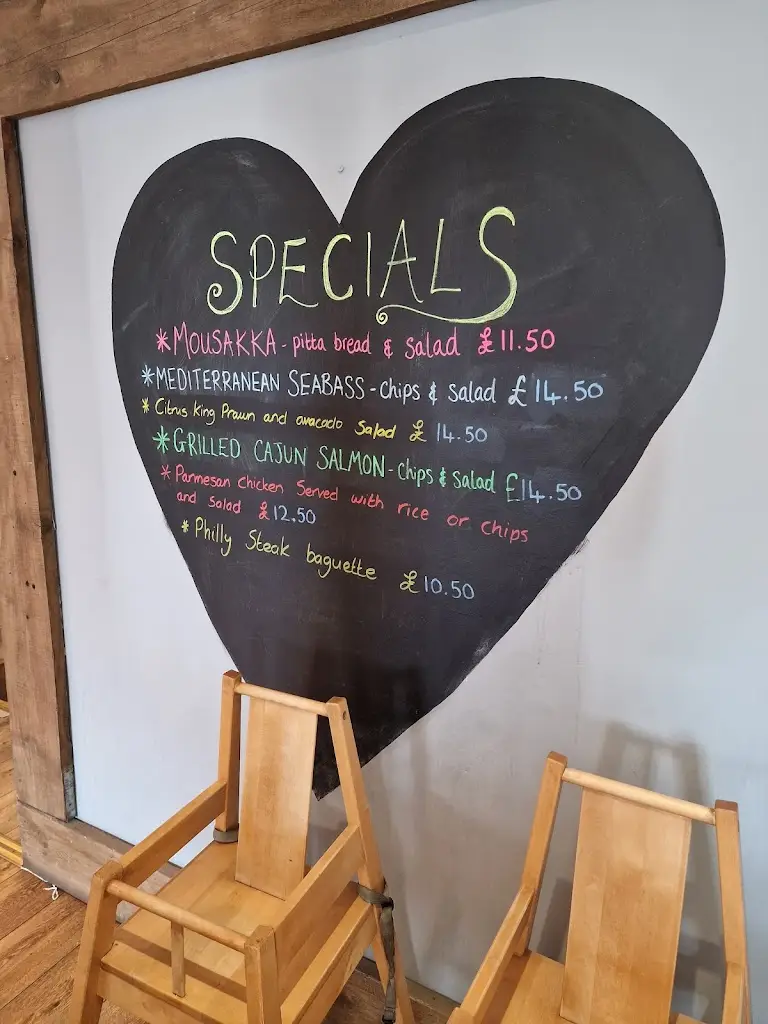 SPECIALS
*MOUSAKKA - pitta bread & salad £11.50
*MEDITERRANEAN SEABASS - chips & salad £14.50
*Citrus King Prawn and avacado Salad £14.50
*GRILLED CAJUN SALMON - chips & salad £14.50
*Parmesan Chicken Served with rice or chips
and salad £12.50
*Philly Steak baguette £10.50